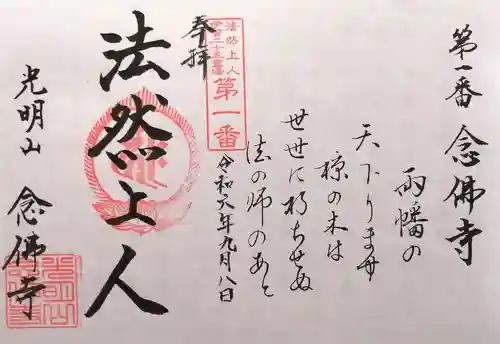 第一番 念佛寺
両幡の
天下ります
椋の木は
世世に朽ちせぬ
法の師のあと
令和六年九月八日
奉拝
法然上人
第一番
法然上人
光明山 念佛寺